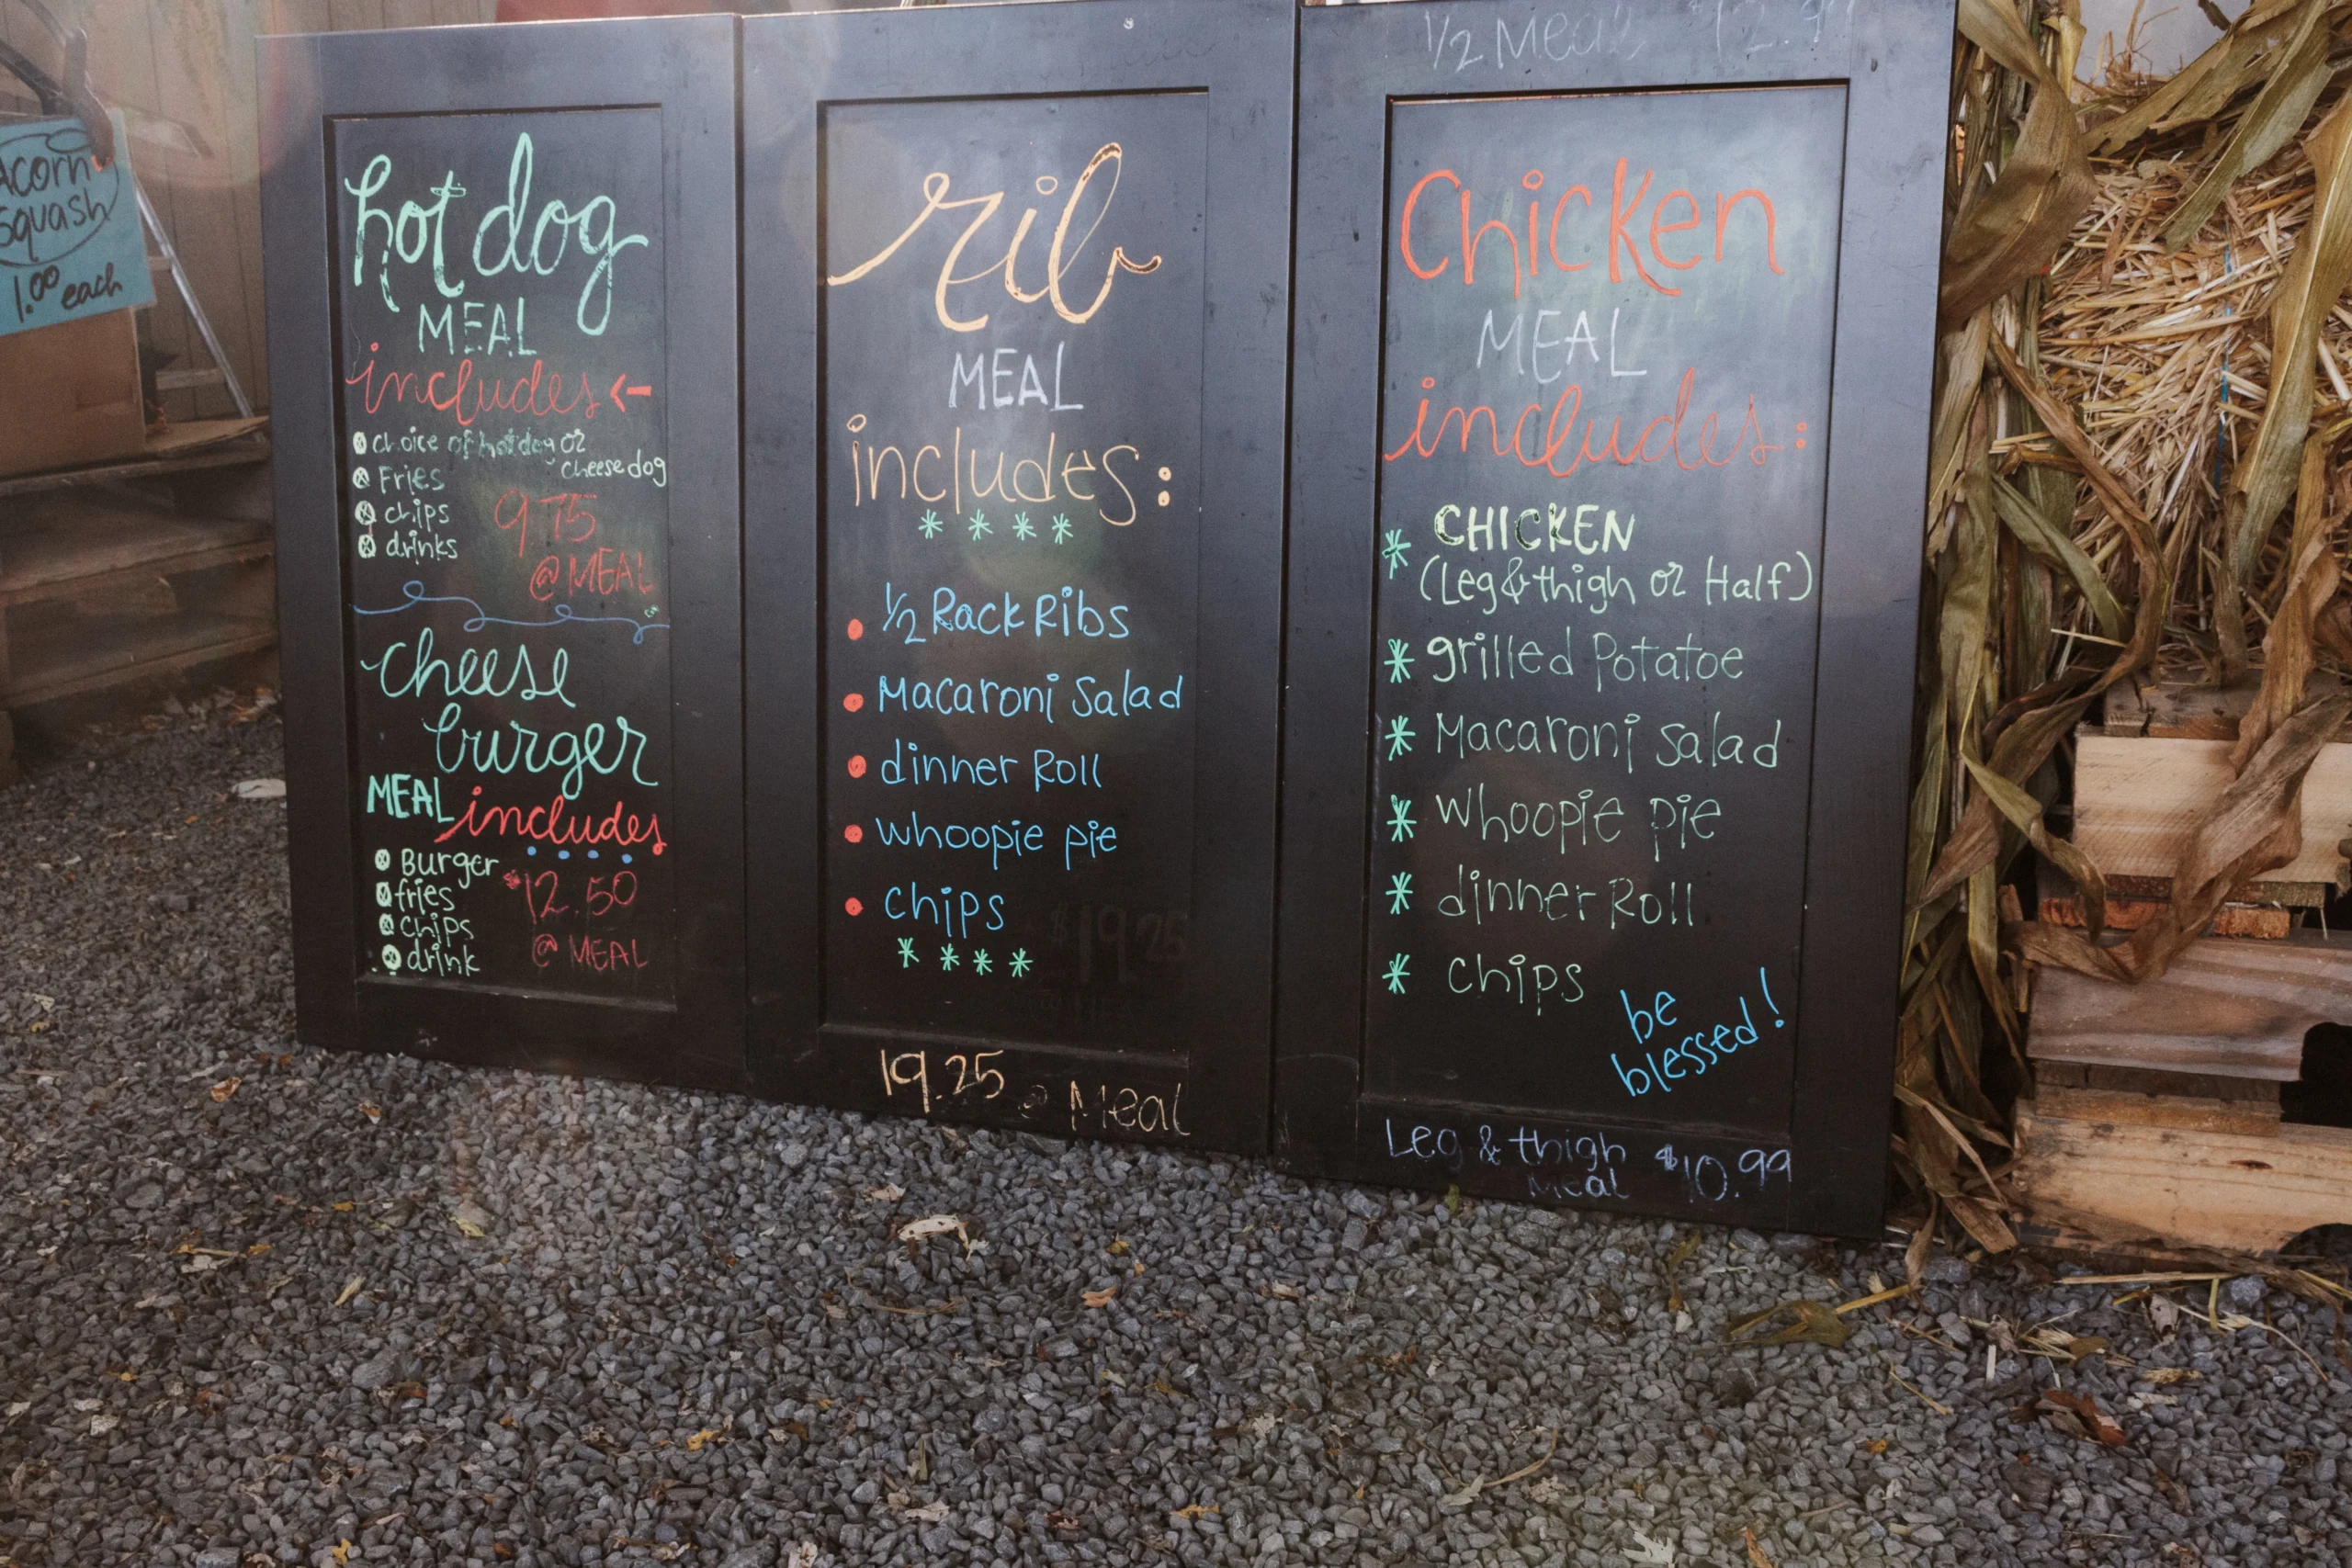 Acorn
Squash
1.00 each
hot dog
MEAL
includes
choice of hotdog or
cheese dog
Fries
chips
drinks
9.75
@ MEAL
cheese
burger
MEAL includes
Burger
fries
chips
drink
$12.50
@ MEAL
rib
MEAL
includes:
1/2 Rack Ribs
Macaroni Salad
dinner Roll
whoopie pie
chips
$19.25
19.25 @ Meal
1/2 Meal
Chicken
MEAL
includes:
CHICKEN
(Leg & thigh or Half)
grilled Potatoe
Macaroni Salad
Whoopie pie
dinner Roll
Chips
be
blessed!
Leg & thigh $10.99
Meal